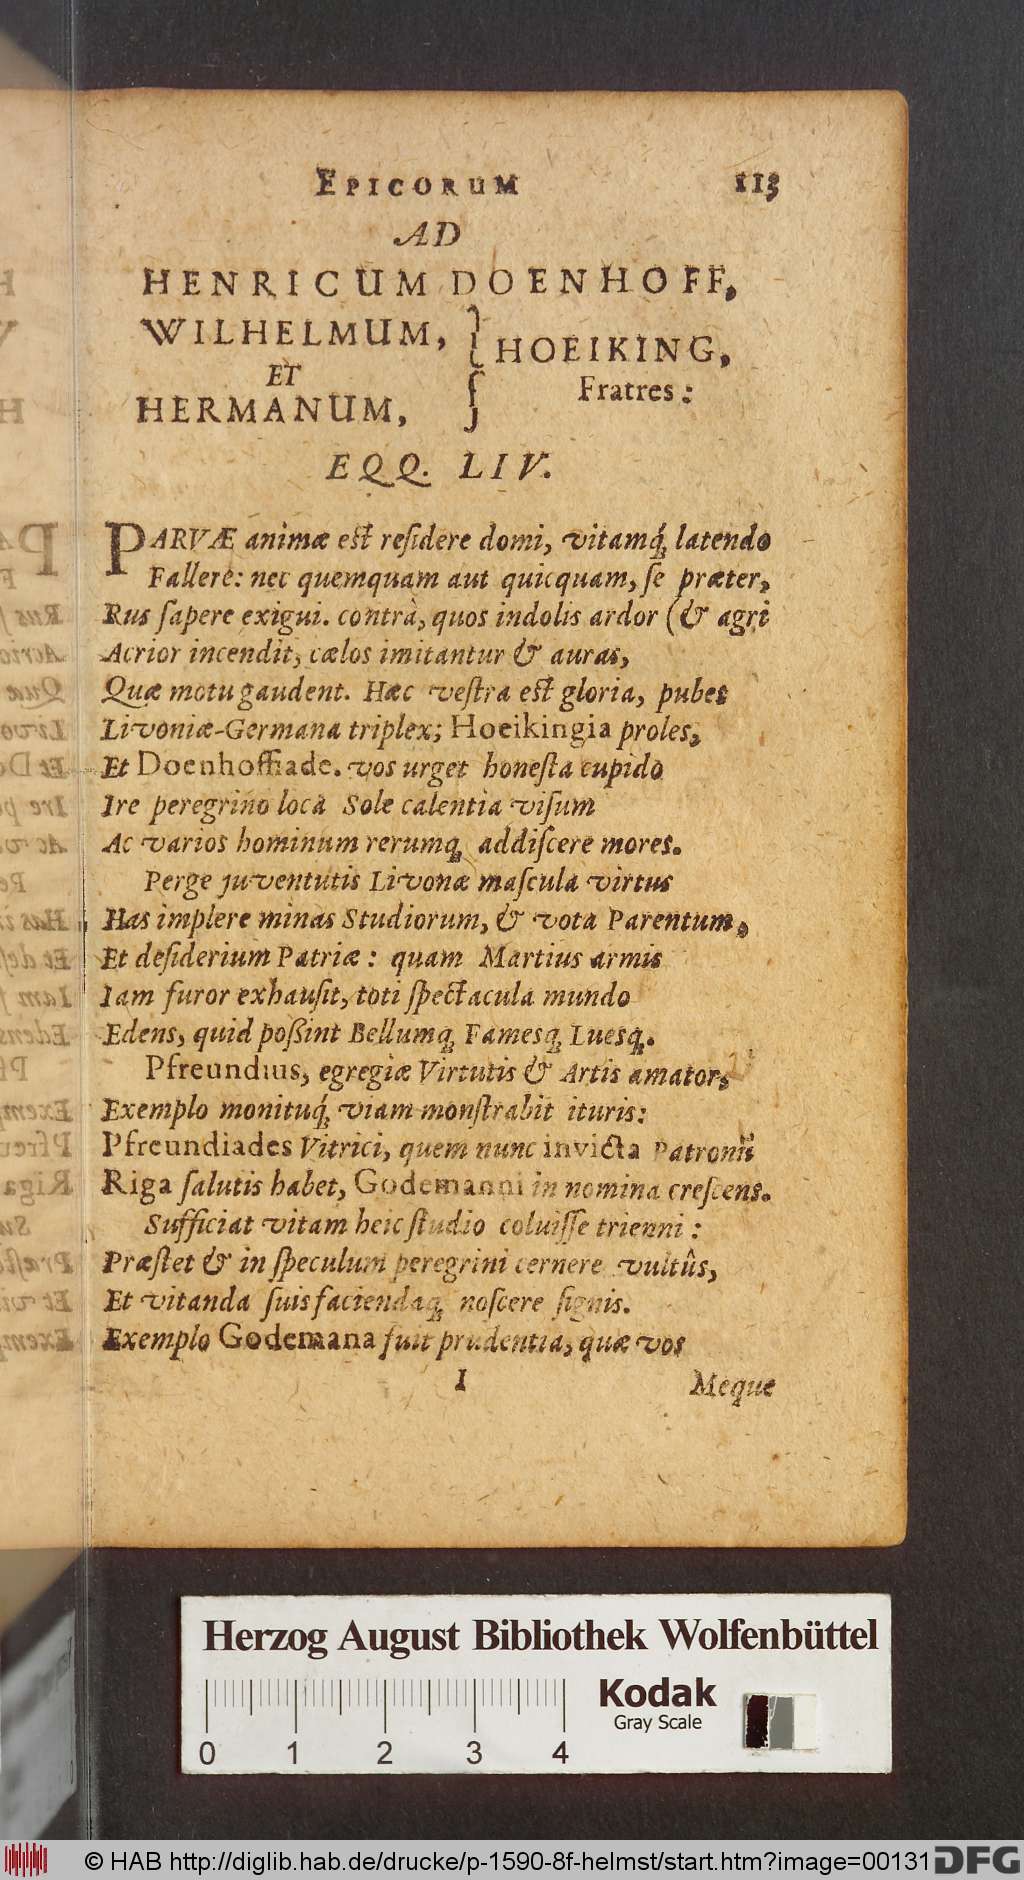 EPICORUM 113
AD
HENRICUM DOENHOFF,
WILHELMUM,
ET
HERMANUM,
HOEIKING,
Fratres:
EQQ. LIV.
PARVÆ animæ est reſidere domi, vitamq́; latendo
Fallere: nec quemquam aut quicquam, ſe præter,
Rus ſapere exigui. contrà, quos indolis ardor (& agri
Acrior incendit, cælos imitantur & auras,
Quæ motu gaudent. Hæc veſtra est gloria, pubes
Livoniæ-Germana triplex; Hoeikingia proles,
Et Doenhoffiade. vos urget honeſta cupido
Ire peregrino loca Sole calentia viſum
Ac varios hominum rerumq; addiſcere mores.
Perge juventutis Livonæ maſcula virtus
Has implere minas Studiorum, & vota Parentum,
Et deſiderium Patriæ: quam Martius armis
Iam furor exhauſit, toti ſpectacula mundo
Edens, quid poßint Bellumq; Famesq; Luesq;.
Pfreundius, egregiæ Virtutis & Artis amator,
Exemplo monituq́; viam monſtrabit ituris:
Pfreundiades Vitrici, quem nunc invicta Patronũ
Riga ſalutis habet, Godemanni in nomina creſcens.
Sufficiat vitam heic ſtudio coluiſſe trienni:
Præſtet & in ſpeculum peregrini cernere vultûs,
Et vitanda ſuis faciendaq; noſcere ſignis.
Exemplo Godemana fuit prudentia, quæ vos
I Meque
Herzog August Bibliothek Wolfenbüttel
Kodak
Gray Scale
0 1 2 3 4
© HAB http://diglib.hab.de/drucke/p-1590-8f-helmst/start.htm?image=00131 DFG